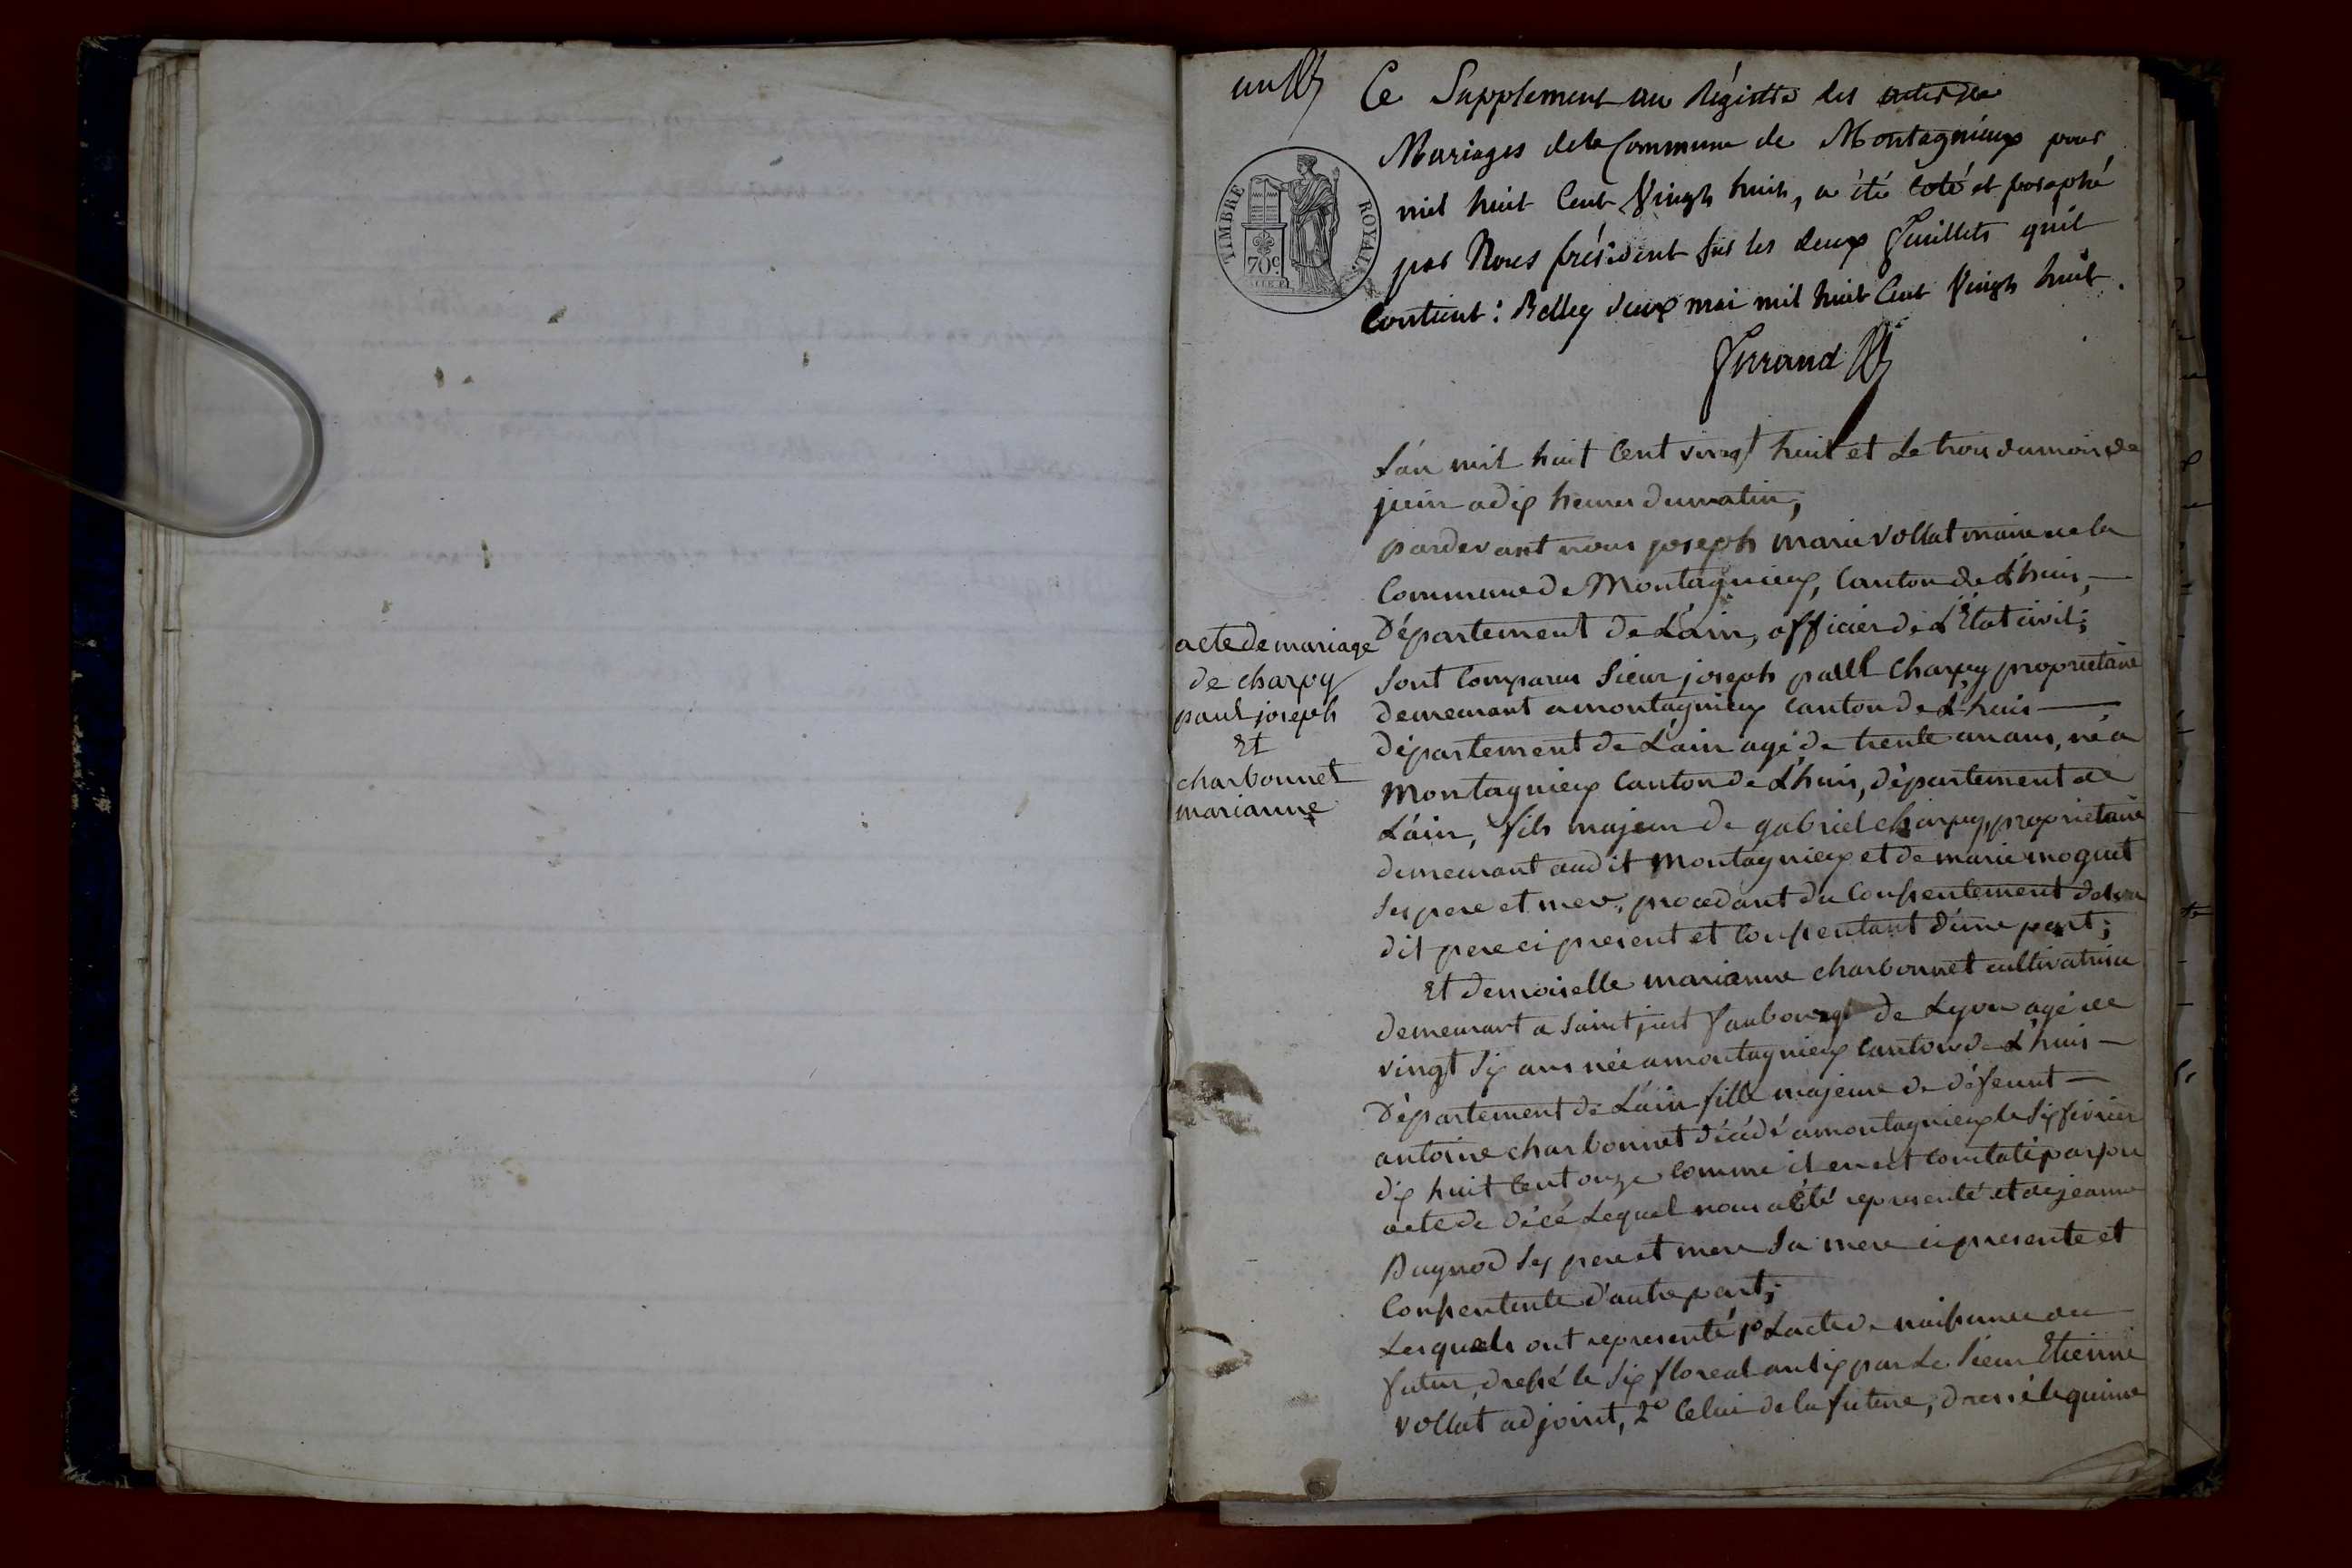 un
Ce Supplement au Régistre des actes de
Mariages de la Commune de Montagnieux pour
mil huit Cent Vingt huit, a été coté et paraphé
par Nous président sur les deux feuillets qu'il
Contient : Belley deux mai mil huit Cent Vingt huit.
Ferrand
TIMBRE ROYAL
70c
L'an mil huit Cent vingt huit et Le trois du mois de
juin a dix heures du matin,
pardevant nous joseph marie vollat maire de la
Commune de Montagnieux, Canton de L'huis,
Département de L'ain, officier de L'Etat civil;
Sont Comparus Sieur joseph paul Charpy proprietaire
demeurant a montagnieux canton de L'huis
département de L'ain agé de trente un ans, né a
Montagnieux Canton de L'huis, département de
L'ain, fils majeur de gabriel charpy, proprietaire
demeurant audit Montagnieux et de marie moquet
ses pere et mere, procedant du Consentement de son
dit pere ci present et Consentant d'une part;
Et demoiselle marianne charbonnet cultivatrice
demeurant a Saint just faubourg de Lyon agé de
vingt Six ans née a montagnieux canton de L'huis
Département de L'ain fille majeure de défeunt
antoine charbonnet décédé a montagnieux le Six février
dix huit Cent onze Comme il en est Constaté par son
acte de décé Lequel nous a été representé et de jeanne
Dugnod Ses pere et mere Sa mere ci presente et
Consentente d'autre part;
Lesquels ont representé 1o L'acte de naissance du
futur, dressé le Six floreal an Six par Le Sieur Etienne
vollat adjoint, 2o Celui de la future, dressé le quinze
acte de mariage
de charpy
paul joseph
Et
charbonnet
marianne